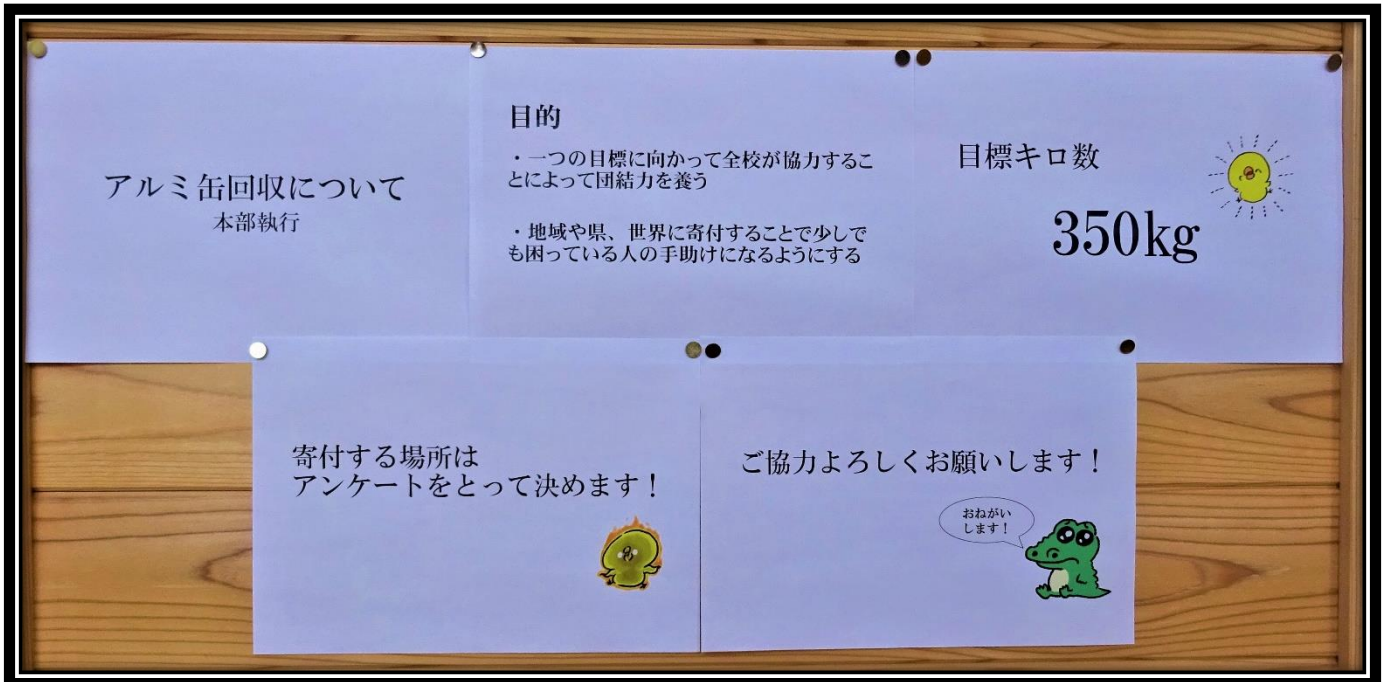 アルミ缶回収について
本部執行
目的
・一つの目標に向かって全校が協力するこ
とによって団結力を養う
・地域や県、世界に寄付することで少しで
も困っている人の手助けになるようにする
目標キロ数
350kg
寄付する場所は
アンケートをとって決めます！
ご協力よろしくお願いします！
おねがい
します！